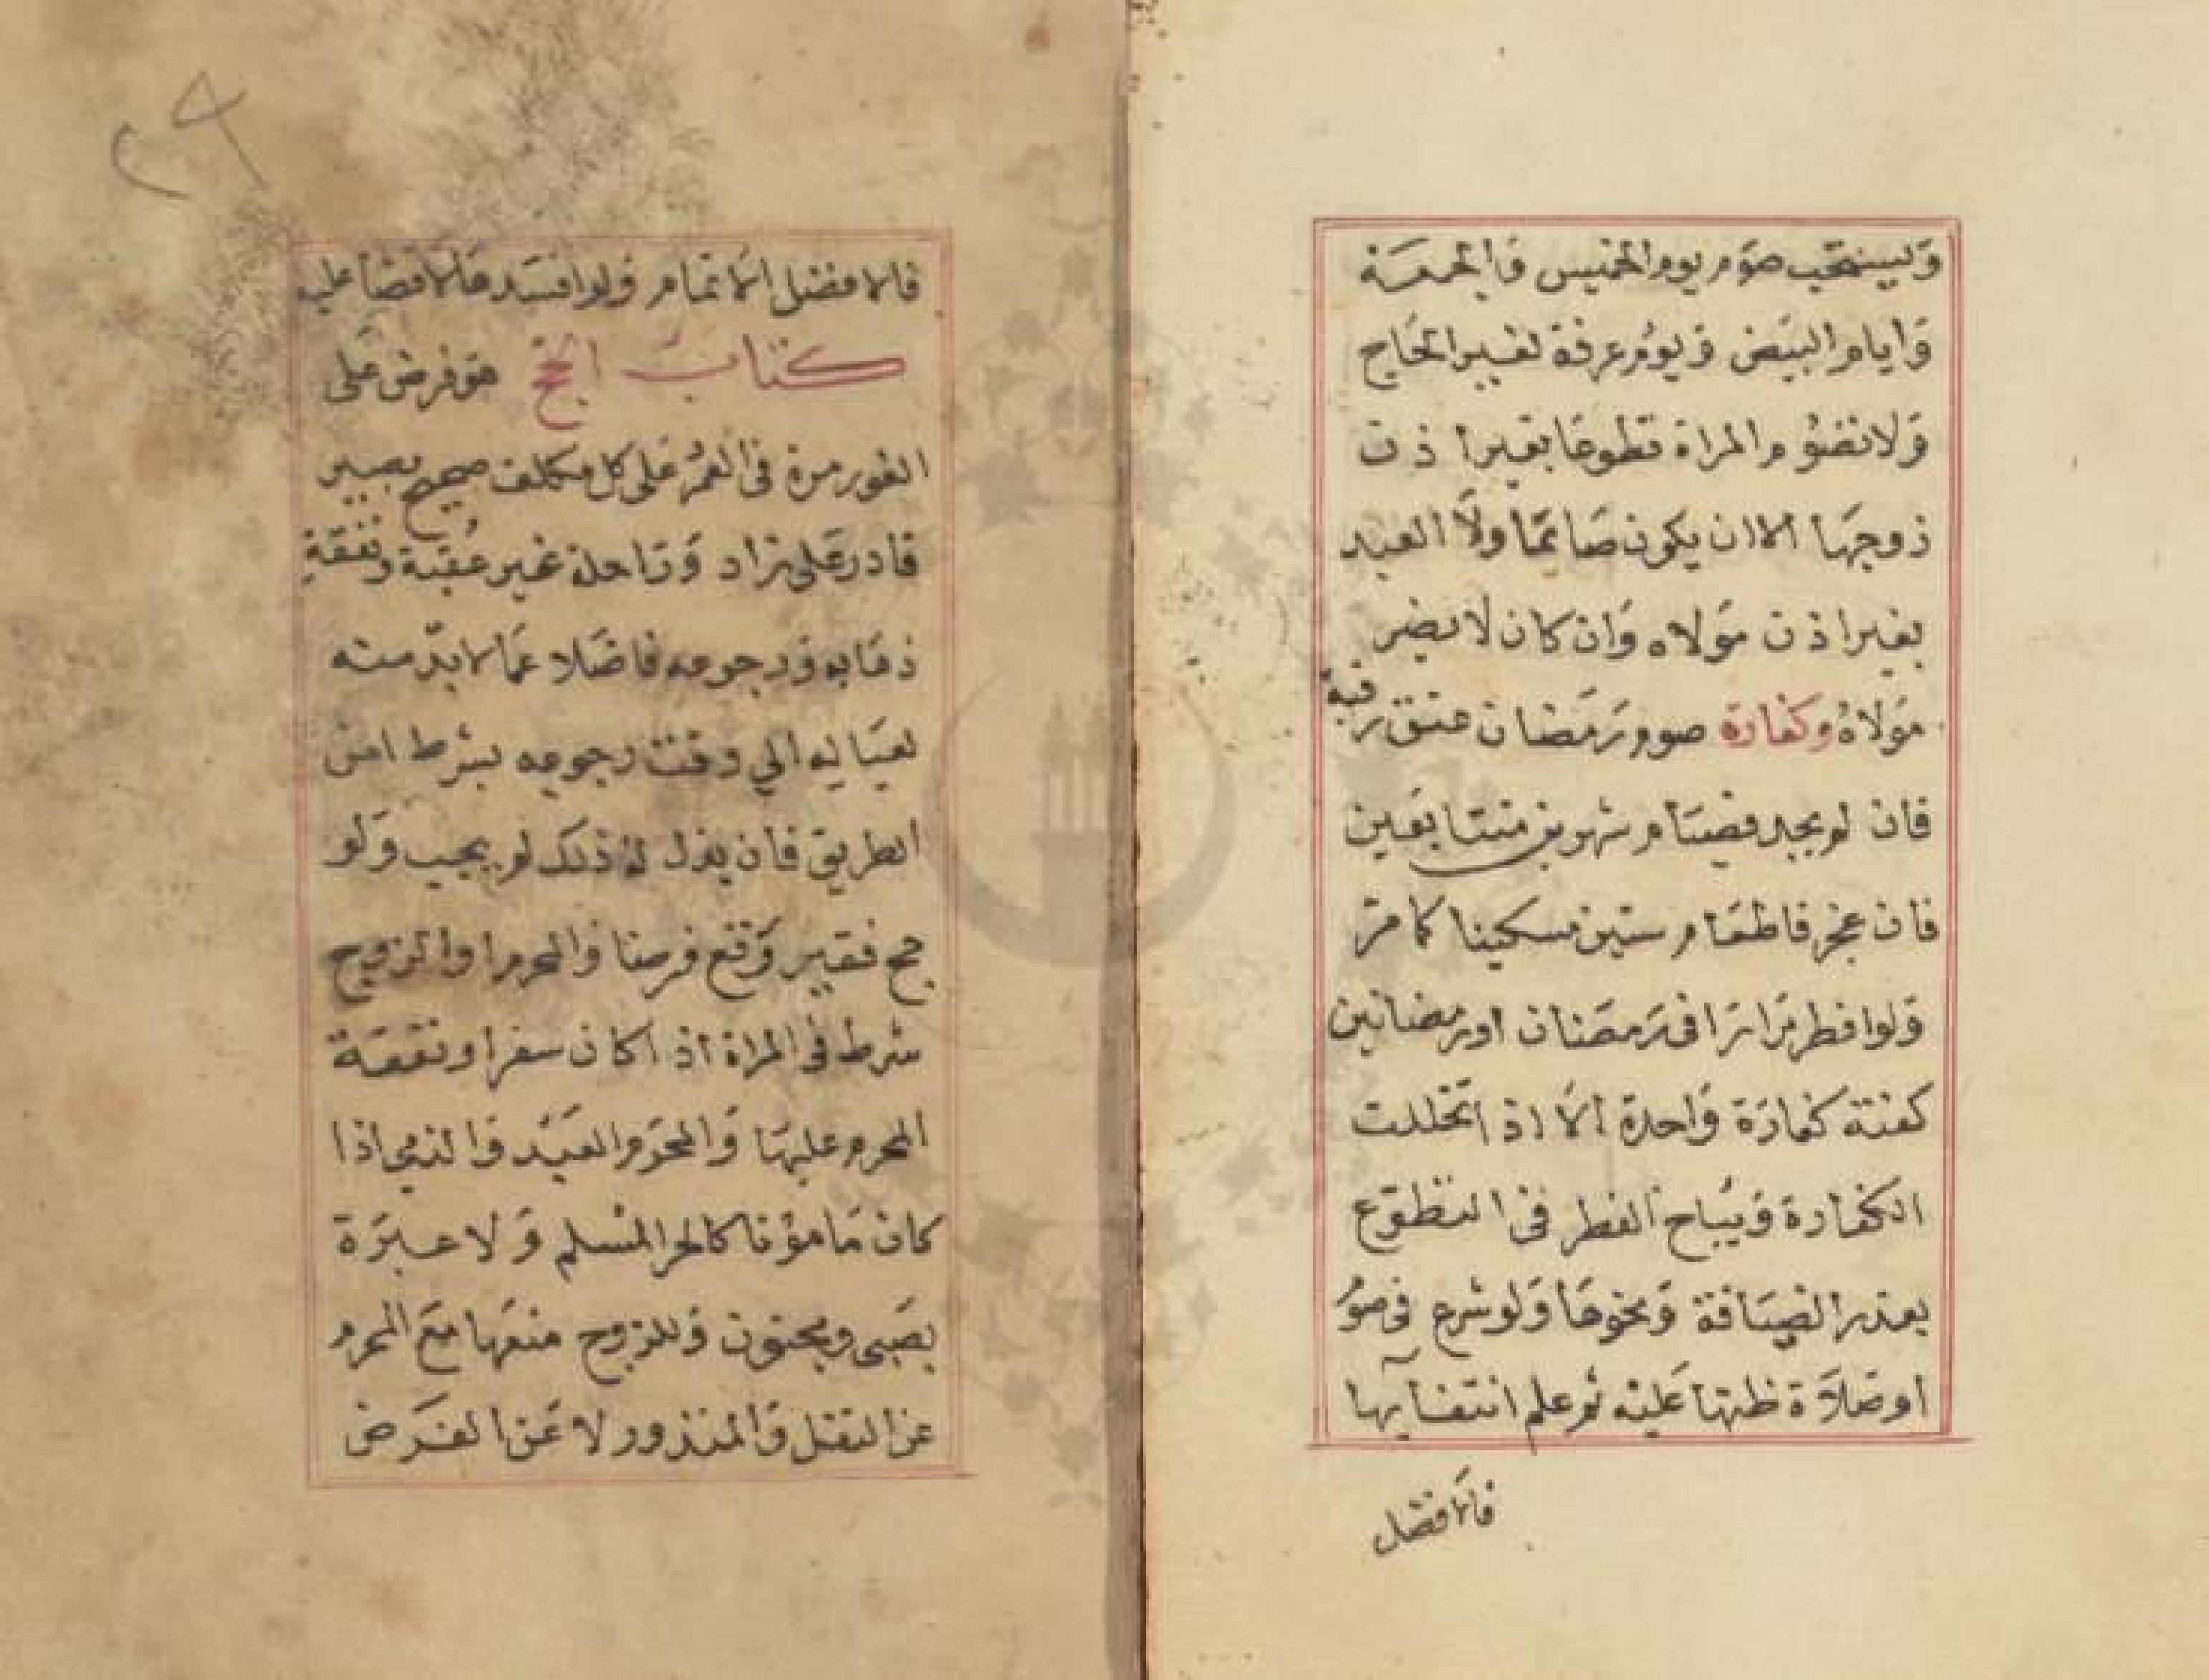 ويستحب صوم يوم الخميس والجمعة
وايام البيض ويوم عرفة لغير الحاج
ولا تصوم المراة تطوعا بغير اذن
زوجها الا ان يكون صائما ولا العبد
بغير اذن مولاه وان كان لا يضر
مولاه وكفارة صوم رمضان عتق رقبة
فان لم يجد فصيام شهرين متتابعين
فان عجز فاطعام ستين مسكينا كما مر
ولو افطر مرارا في رمضان او رمضانين
كفته كفارة واحدة الا اذا تخللت
الكفارة ويباح الفطر في التطوع
بعذر الضيافة ونحوها ولو شرع في صوم
او صلاة ظنها عليه ثم علم انتفآيها
فالافضل
٢٩
فالافضل الاتمام ولو افسد فلا قضا عليه
كتاب الحج هو فرض على
الفور مرة في العمر على كل مكلف صحيح بصير
قادر على زاد وراحلة غير عقبة ونفقة
ذهابه ورجوعه فاضلا عما لا بد منه
لعياله الي وقت رجوعه بشرط امن
الطريق فان بذل له ذلك لم يجب ولو
حج فقير وقع فرضا والمحرم او الزوج
شرط في المراة اذا كان سفرا ونفقة
المحرم عليها والمحرم العبد والذمي اذا
كان مامونا كالحر المسلم ولا عبرة
بصبى ومجنون وللزوج منعها مع المحرم
عن النفل والمنذور لا عن الفرض